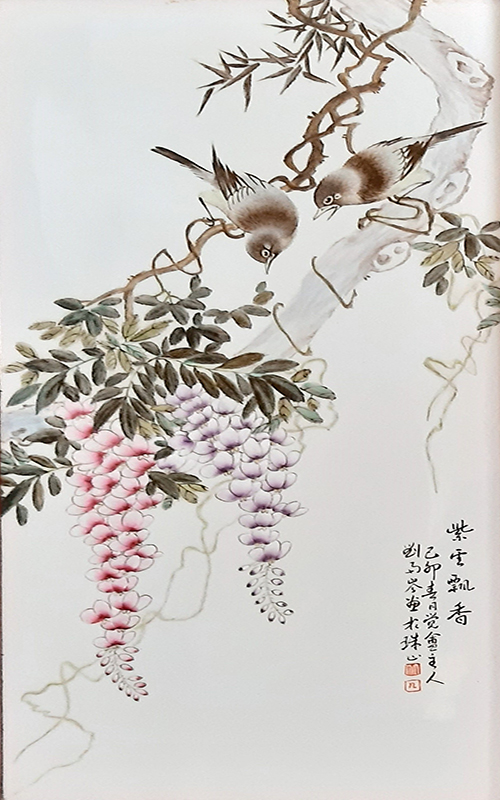 紫雲飄香
己卯春月覺盦主人
劉雨岑畫於珠山